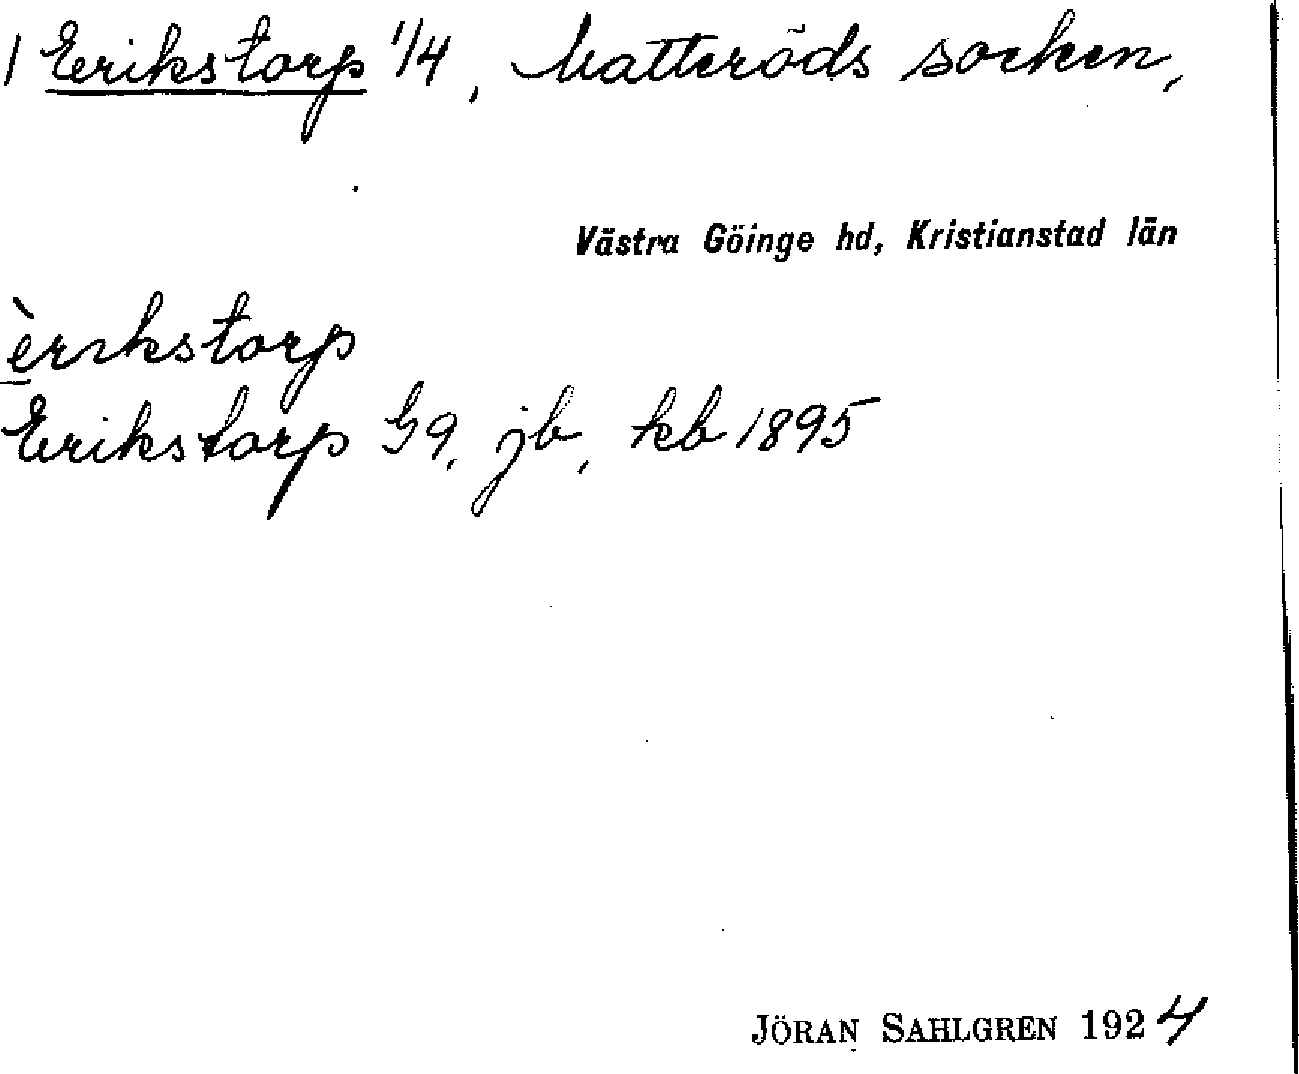 1 Erikstorp 1/4, Matteröds socken,
Västra Göinge hd, Kristianstad län
èrikstorp
Erikstorp G9, jb, kb 1895
JÖRAN SAHLGREN 1924